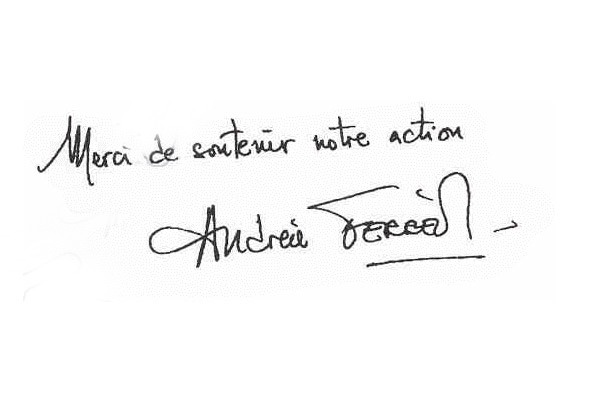 Merci de soutenir notre action
Andrée